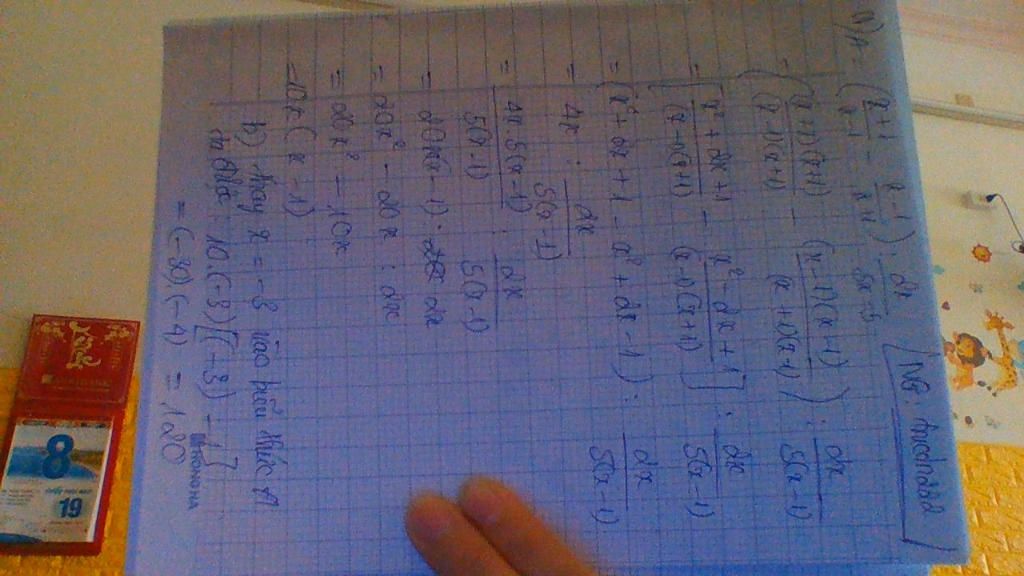 1) A = (x+1/x-1 - x-1/x+1) : 2x/5x-5
= ((x+1)(x+1)/(x-1)(x+1) - (x-1)(x-1)/(x+1)(x-1)) : 2x/5(x-1)
= [x²+2x+1/(x-1)(x+1) - x²-2x+1/(x-1)(x+1)] : 2x/5(x-1)
= (x²+2x+1-x²+2x-1) : 2x/5(x-1)
= 4x : 2x/5(x-1)
= 4x.5(x-1)/5(x-1) : 2x/5(x-1)
= 20x(x-1) : 2x
= 20x² - 20x : 2x
= 20x² - 10x
= 10x(x-1)
b) Thay x = -3 vào biểu thức A
ta được: 10.(-3)[(-3)-1]
= (-30).(-4) = 120
HONG HA
8
19